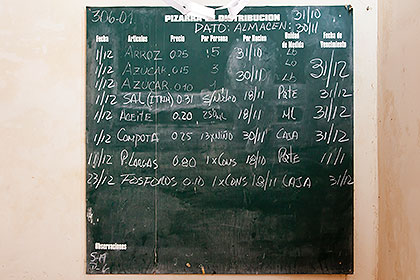 306-01 PIZARRA DE DISTRIBUCION 31/10
DATO: ALMACEN: 30/11
Fecha Artículos Precio Per Persona Por Nucleo Unidad de Medida Fecha de Vencimiento
1/12 ARROZ 0.25 5 31/10 Lb
1/12 AZUCAR 0.15 3 30/11 Lb 31/12
1/12 AZUCAR 0.10 Lb
1/12 SAL (ITRA) 0.31 S/Núcleo 18/11 Pqte 31/12
1/12 ACEITE 0.20 250ML 18/11 ML 31/12
1/12 COMPOTA 0.25 13xNIÑO 30/11 CAJA 31/12
11/12 P. LARGAS 0.80 1xCONS 18/10 Pqte 11/1
23/12 FOSFOROS 0.10 1xCONS 18/11 CAJA 31/12
Observaciones